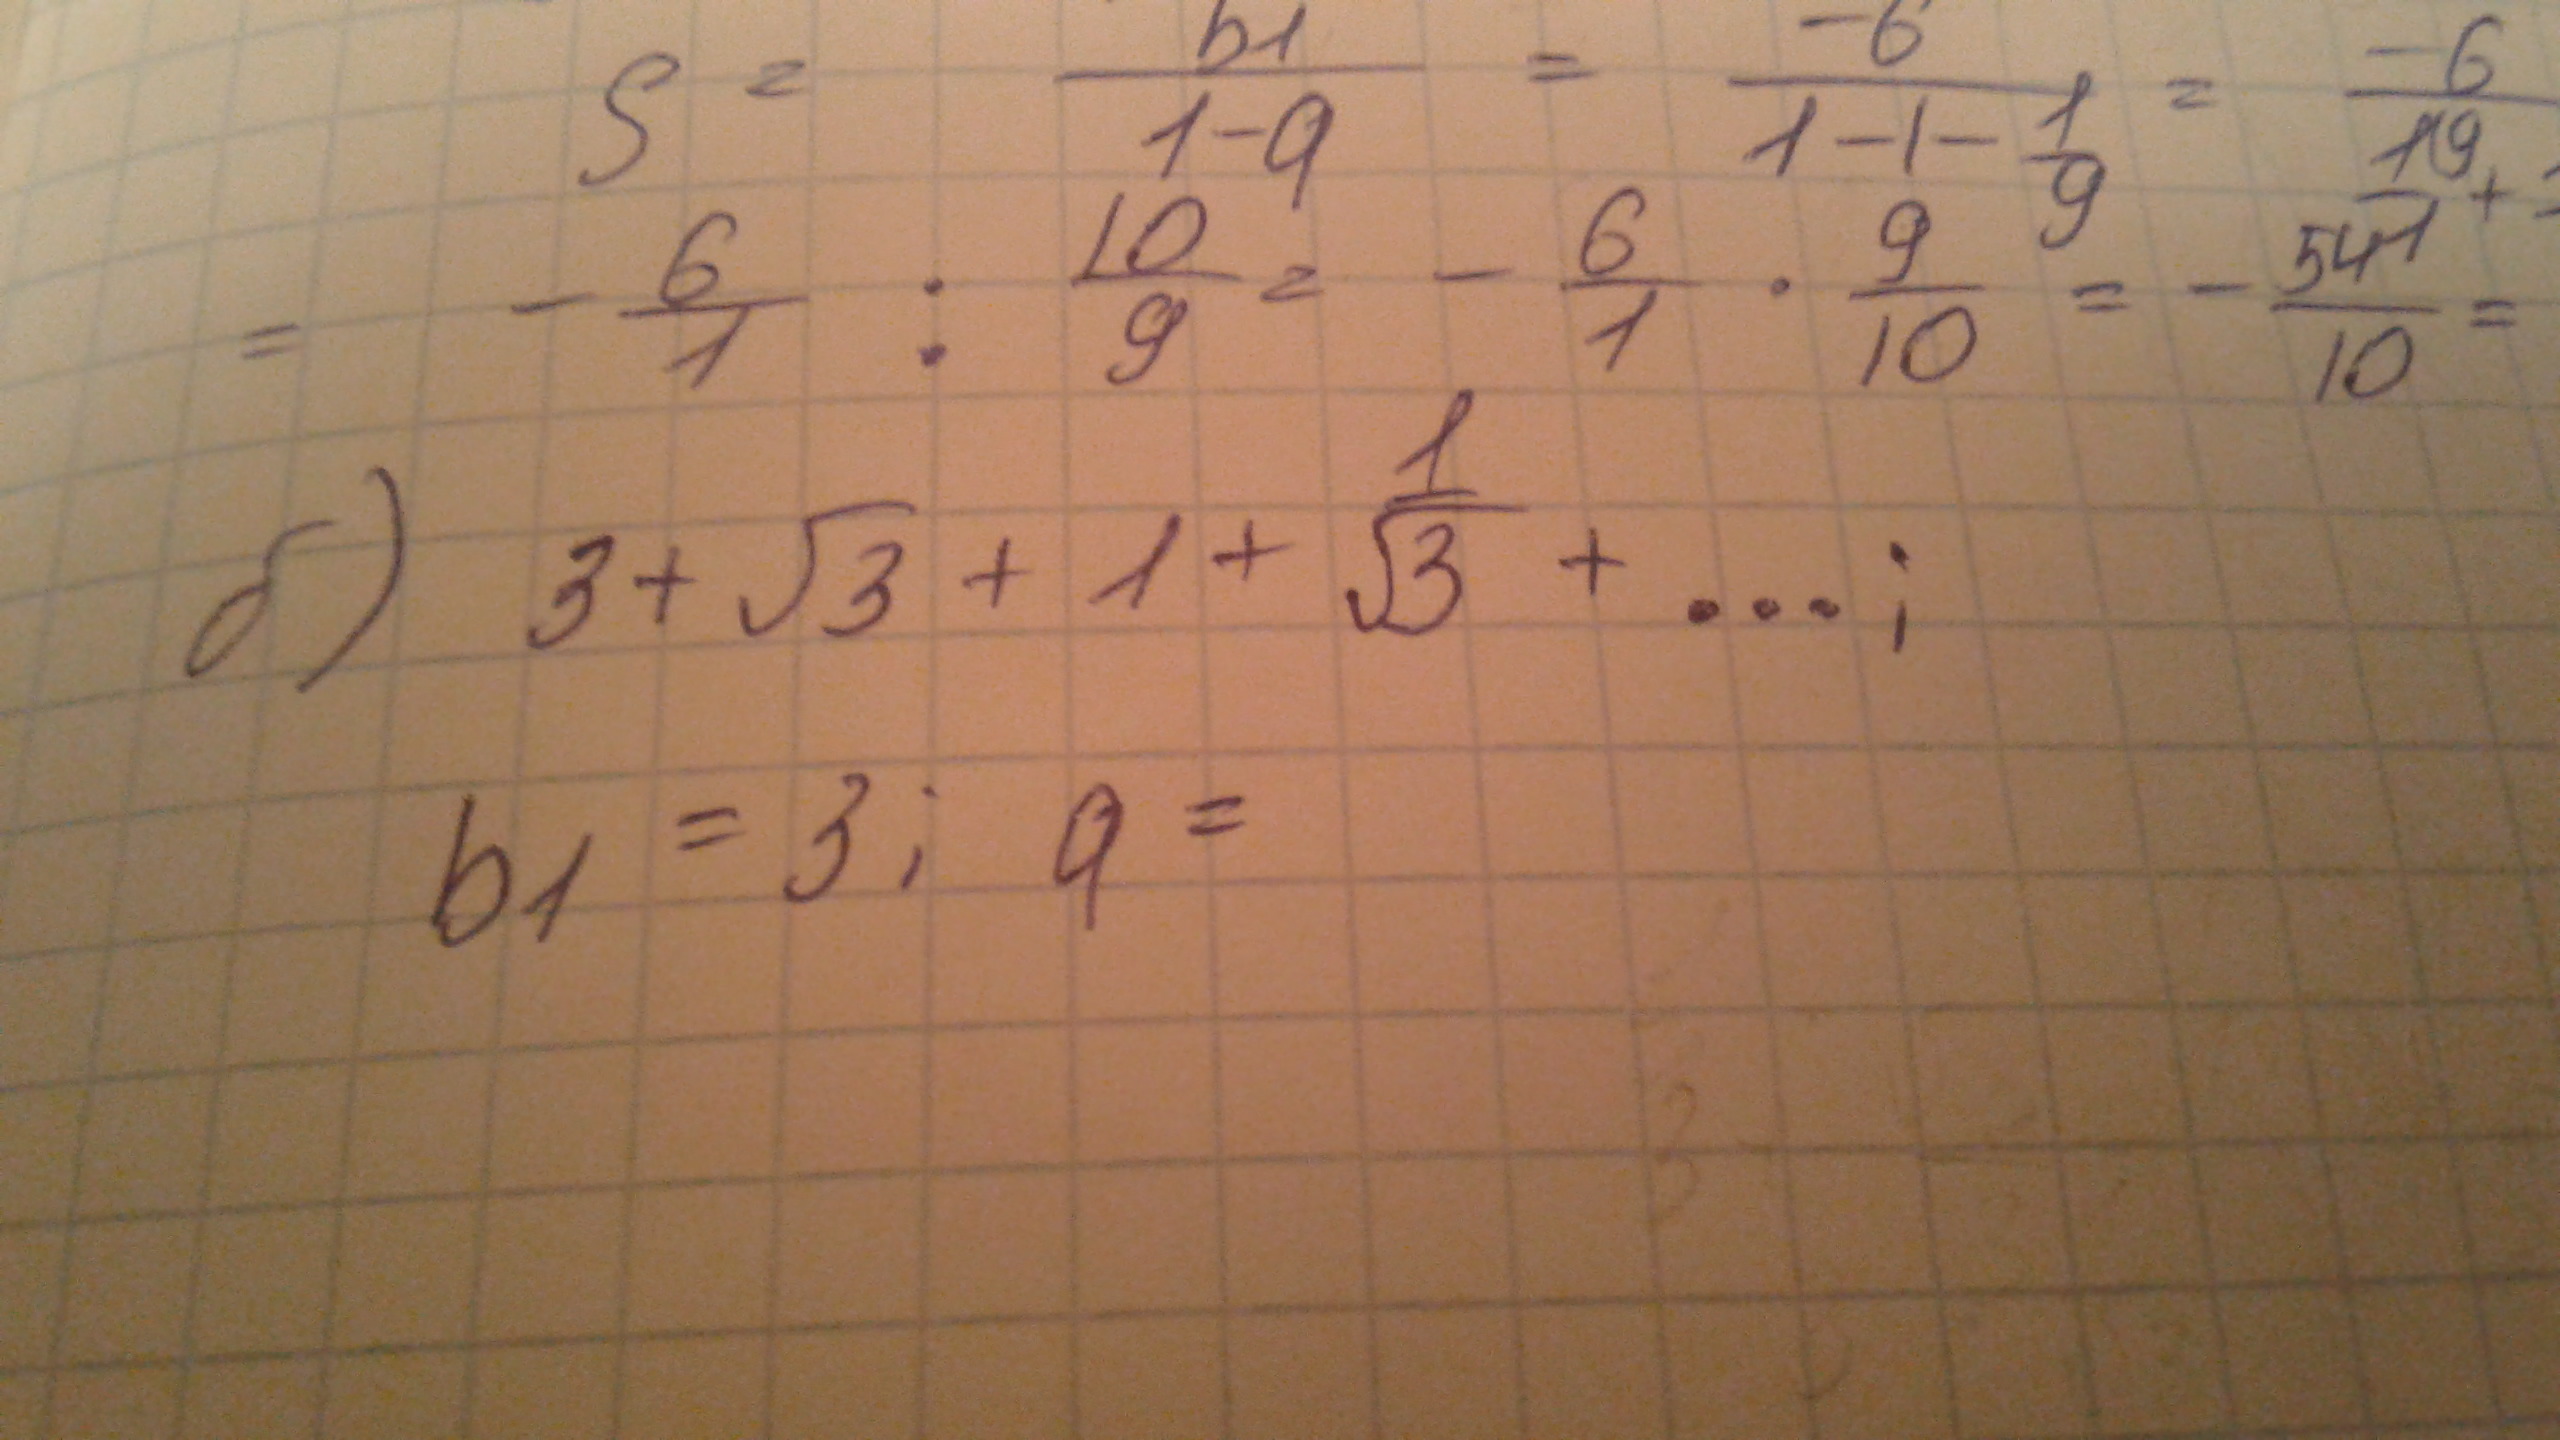 S = b1/(1-q) = -6/(1-1-1/9) = -6/
= -6/1 : 10/9 = -6/1 · 9/10 = -54/10 =
б) 3 + √3 + 1 + 1/√3 + ...;
b1 = 3; q =